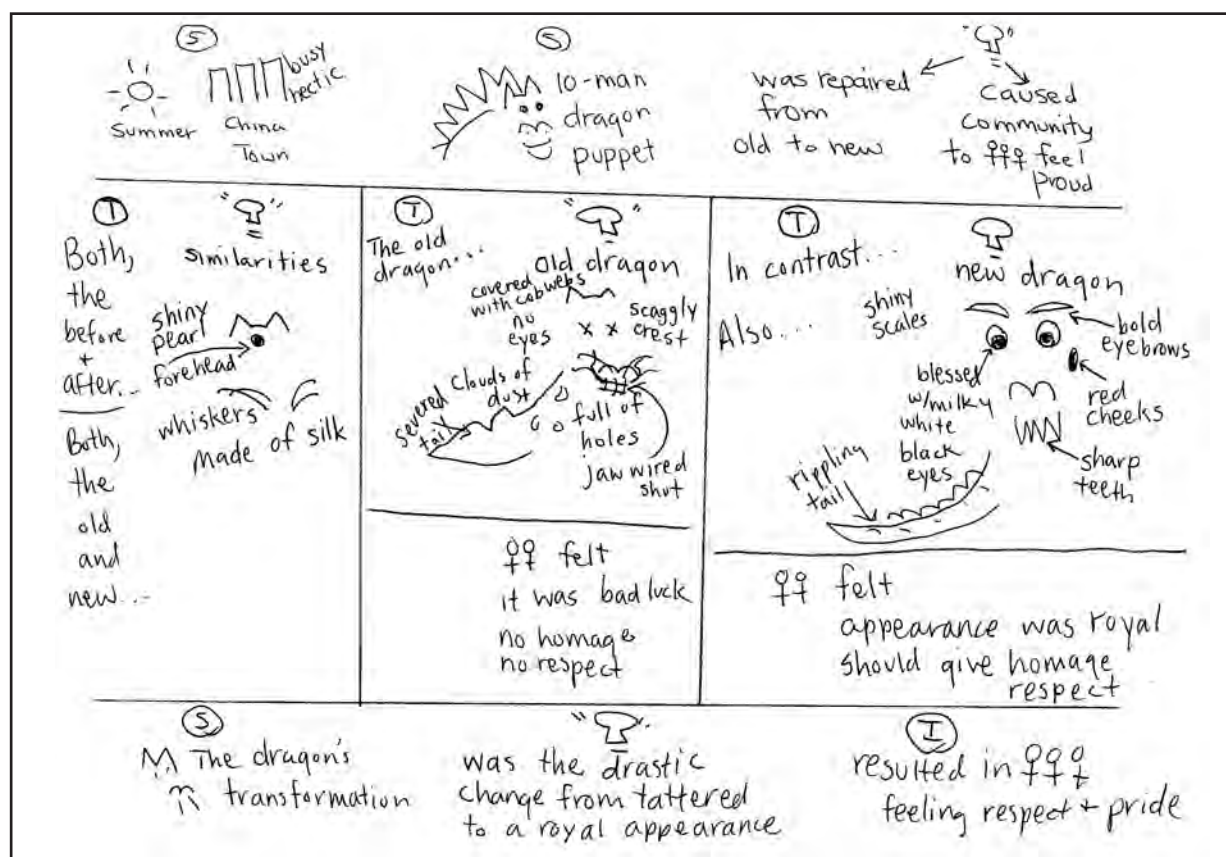 S
Summer
China
Town
busy
hectic
S
10-man
dragon
puppet
was repaired
from
old to new
caused
community
to feel
proud
T
Both,
the
before
+
after...
Both,
the
old
and
new...
similarities
shiny
pearl
forehead
whiskers
made of silk
T
The old
dragon...
old dragon
covered
with cobwebs
no
eyes
scaggly
crest
severed
tail
Clouds of
dust
full of
holes
jaw wired
shut
felt
it was bad luck
no homage
no respect
T
In contrast...
Also...
new dragon
shiny
scales
bold
eyebrows
blessed
w/milky
white
black
eyes
red
cheeks
sharp
teeth
rippling
tail
felt
appearance was royal
should give homage
respect
S
The dragon's
transformation
was the drastic
change from tattered
to a royal appearance
I
resulted in
feeling respect + pride